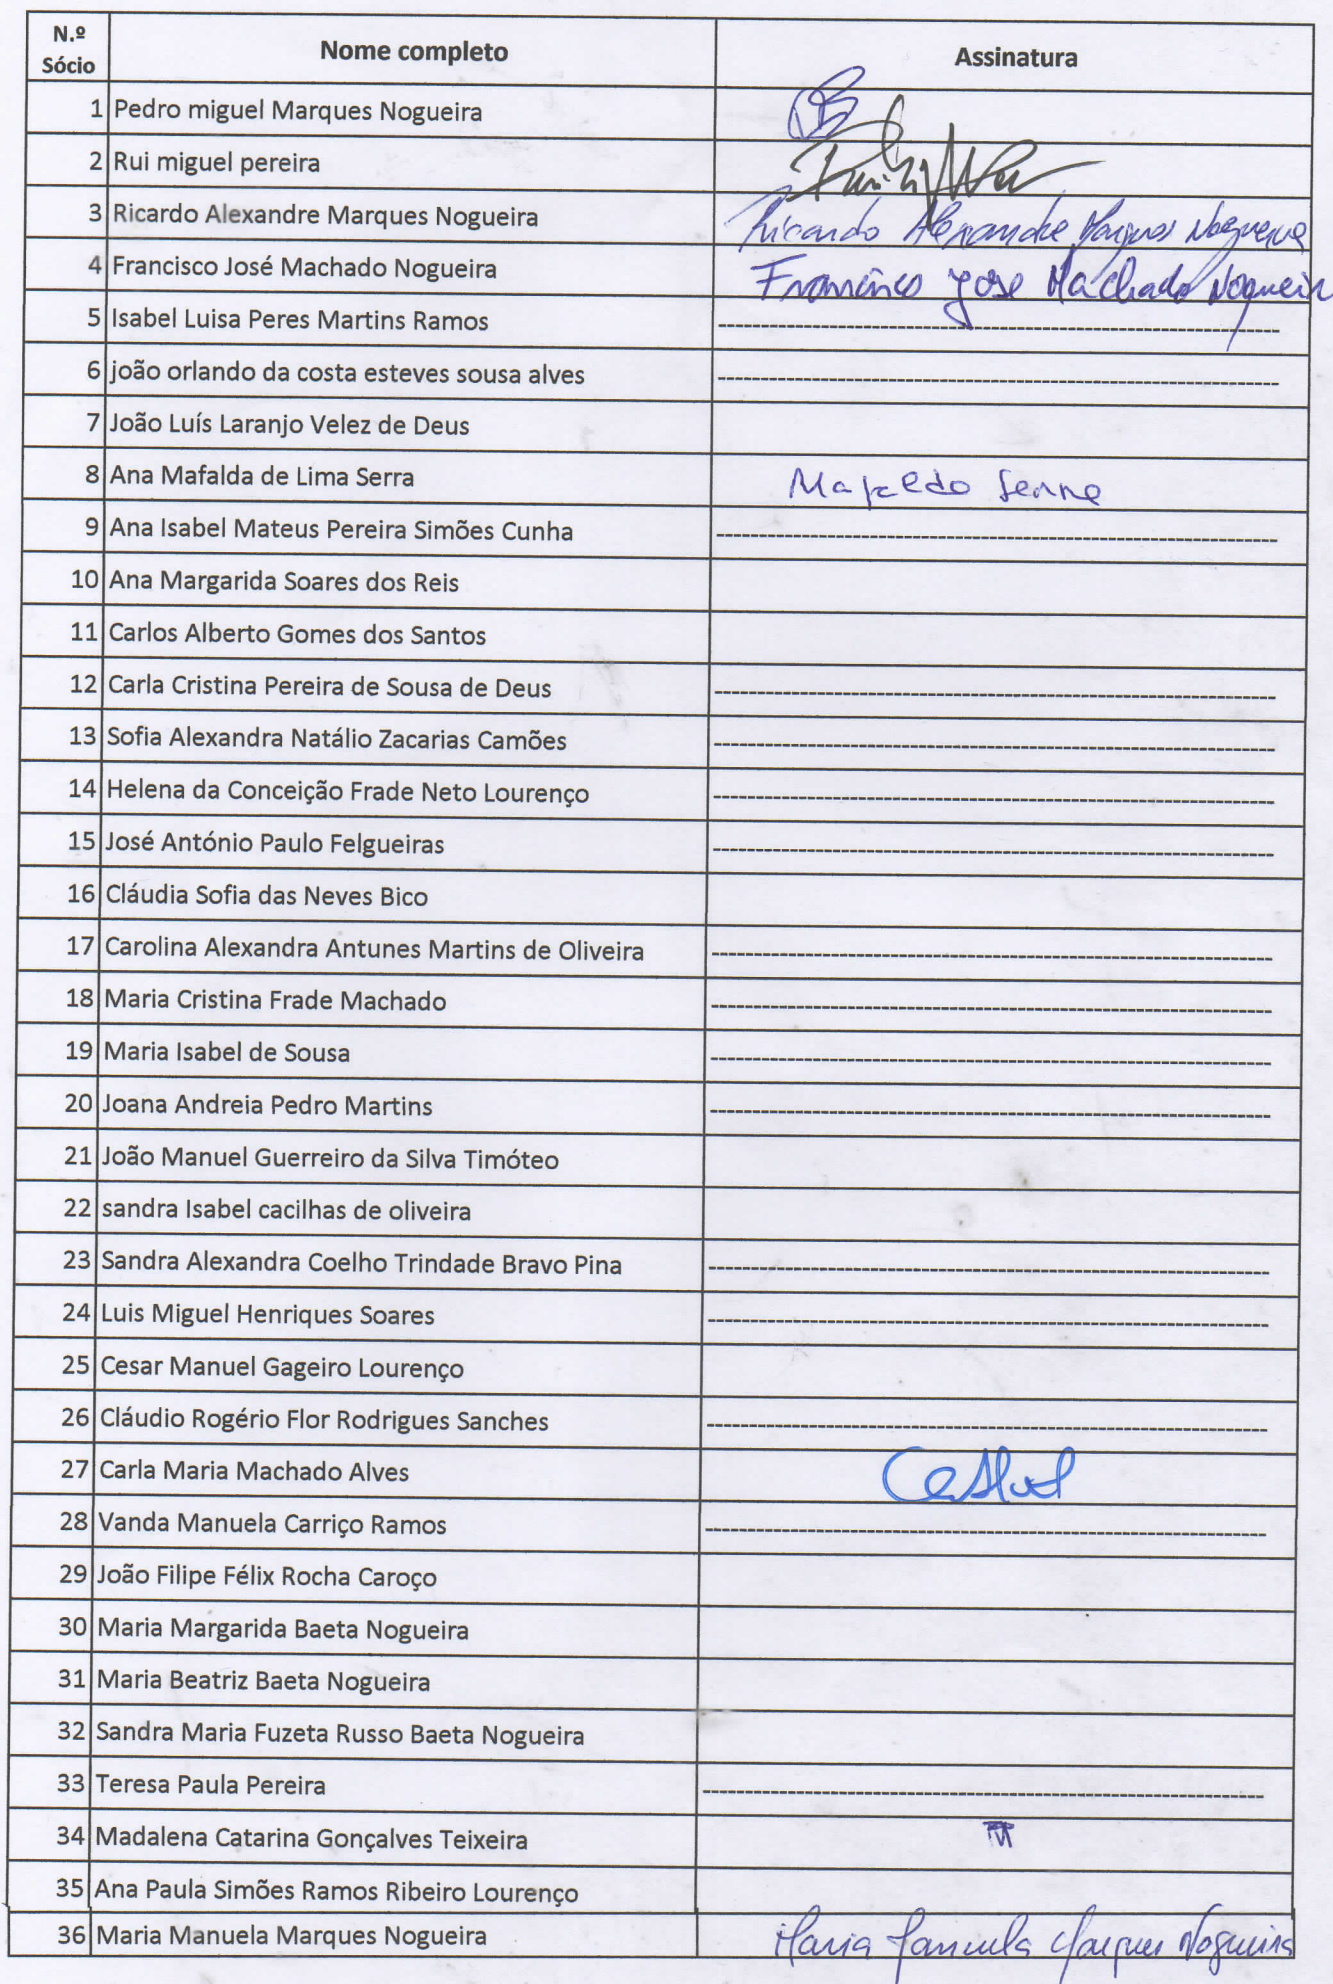 N.º Sócio Nome completo Assinatura
1 Pedro miguel Marques Nogueira
2 Rui miguel pereira
3 Ricardo Alexandre Marques Nogueira Ricardo Alexandre Marques Nogueira
4 Francisco José Machado Nogueira Francisco José Machado Nogueira
5 Isabel Luisa Peres Martins Ramos ----------
6 joão orlando da costa esteves sousa alves ----------
7 João Luís Laranjo Velez de Deus
8 Ana Mafalda de Lima Serra Mafalda Serra
9 Ana Isabel Mateus Pereira Simões Cunha ----------
10 Ana Margarida Soares dos Reis
11 Carlos Alberto Gomes dos Santos
12 Carla Cristina Pereira de Sousa de Deus ----------
13 Sofia Alexandra Natálio Zacarias Camões ----------
14 Helena da Conceição Frade Neto Lourenço ----------
15 José António Paulo Felgueiras ----------
16 Cláudia Sofia das Neves Bico
17 Carolina Alexandra Antunes Martins de Oliveira ----------
18 Maria Cristina Frade Machado ----------
19 Maria Isabel de Sousa ----------
20 Joana Andreia Pedro Martins ----------
21 João Manuel Guerreiro da Silva Timóteo
22 sandra Isabel cacilhas de oliveira
23 Sandra Alexandra Coelho Trindade Bravo Pina ----------
24 Luis Miguel Henriques Soares ----------
25 Cesar Manuel Gageiro Lourenço
26 Cláudio Rogério Flor Rodrigues Sanches ----------
27 Carla Maria Machado Alves
28 Vanda Manuela Carriço Ramos ----------
29 João Filipe Félix Rocha Caroço
30 Maria Margarida Baeta Nogueira
31 Maria Beatriz Baeta Nogueira
32 Sandra Maria Fuzeta Russo Baeta Nogueira
33 Teresa Paula Pereira ----------
34 Madalena Catarina Gonçalves Teixeira
35 Ana Paula Simões Ramos Ribeiro Lourenço
36 Maria Manuela Marques Nogueira Maria Manuela Marques Nogueira